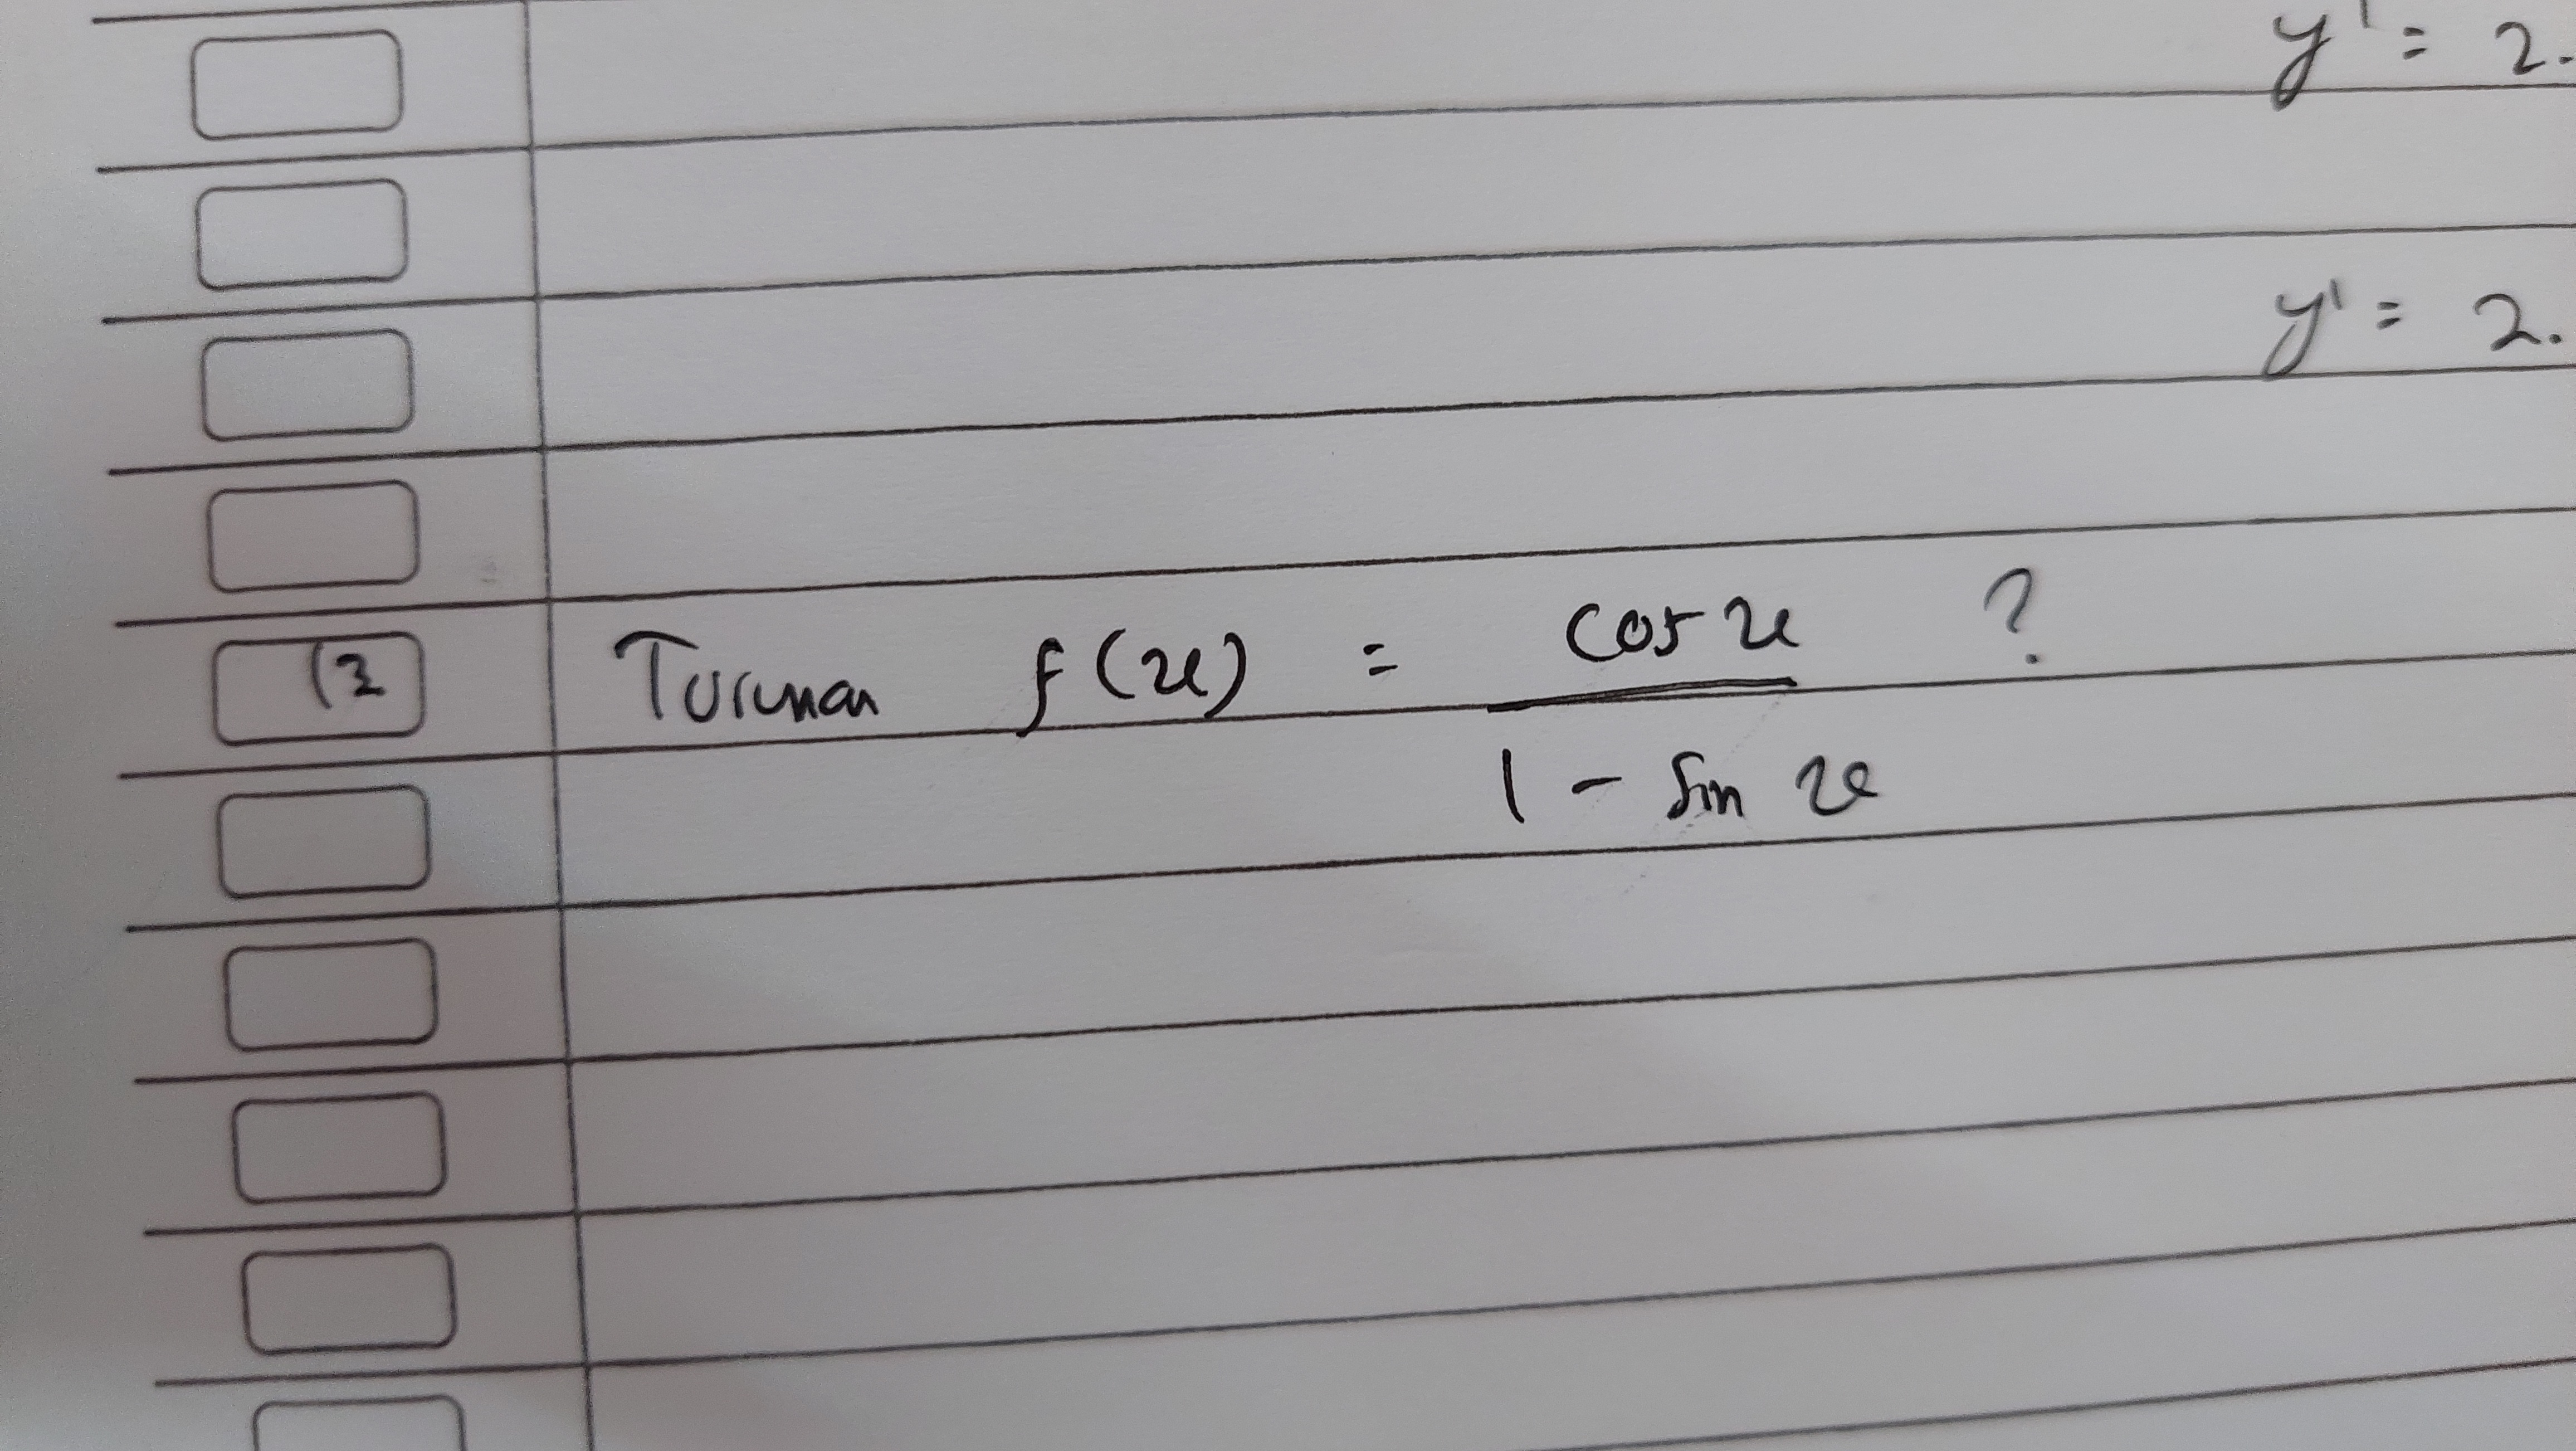 y' = 2.
y' = 2.
13 Turunan f(x) = cos x / 1 - sin x ?